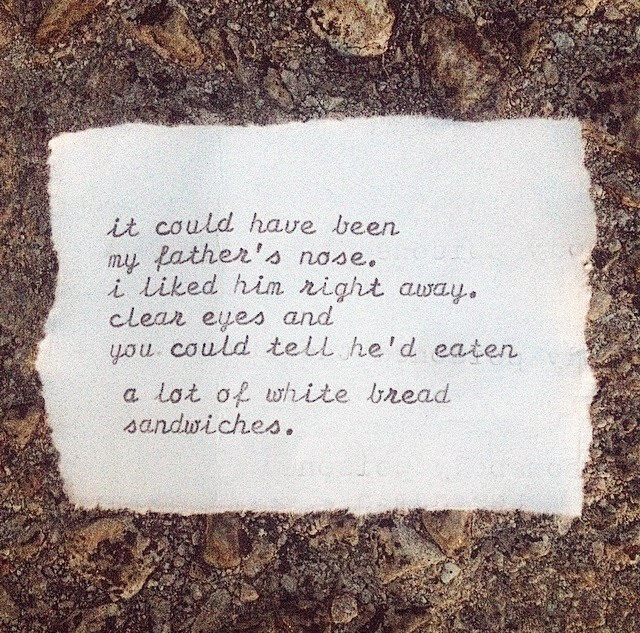 it could have been
my father's nose.
i liked him right away.
clear eyes and
you could tell he'd eaten
a lot of white bread
sandwiches.